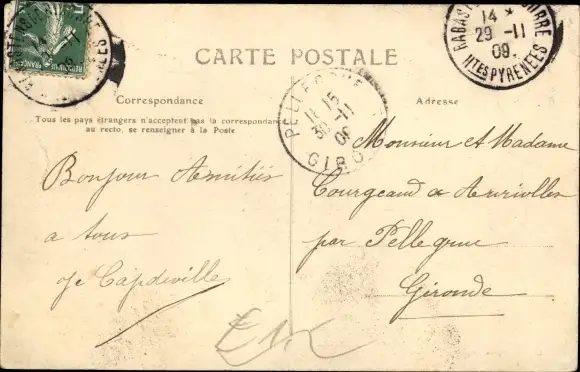 CARTE POSTALE
RABAS
14 *
29 -11
09
HTES PYRENEES
Correspondance
Adresse
Tous les pays étrangers n'acceptent pas la correspondance
au recto, se renseigner à la Poste
PELLEGRUE
11 15
30 -11
09
GIRO
Bonjour Amitiés
a tous
Capdeville
Monsieur et Madame
Courgeaud a
par Pellegrue
Gironde